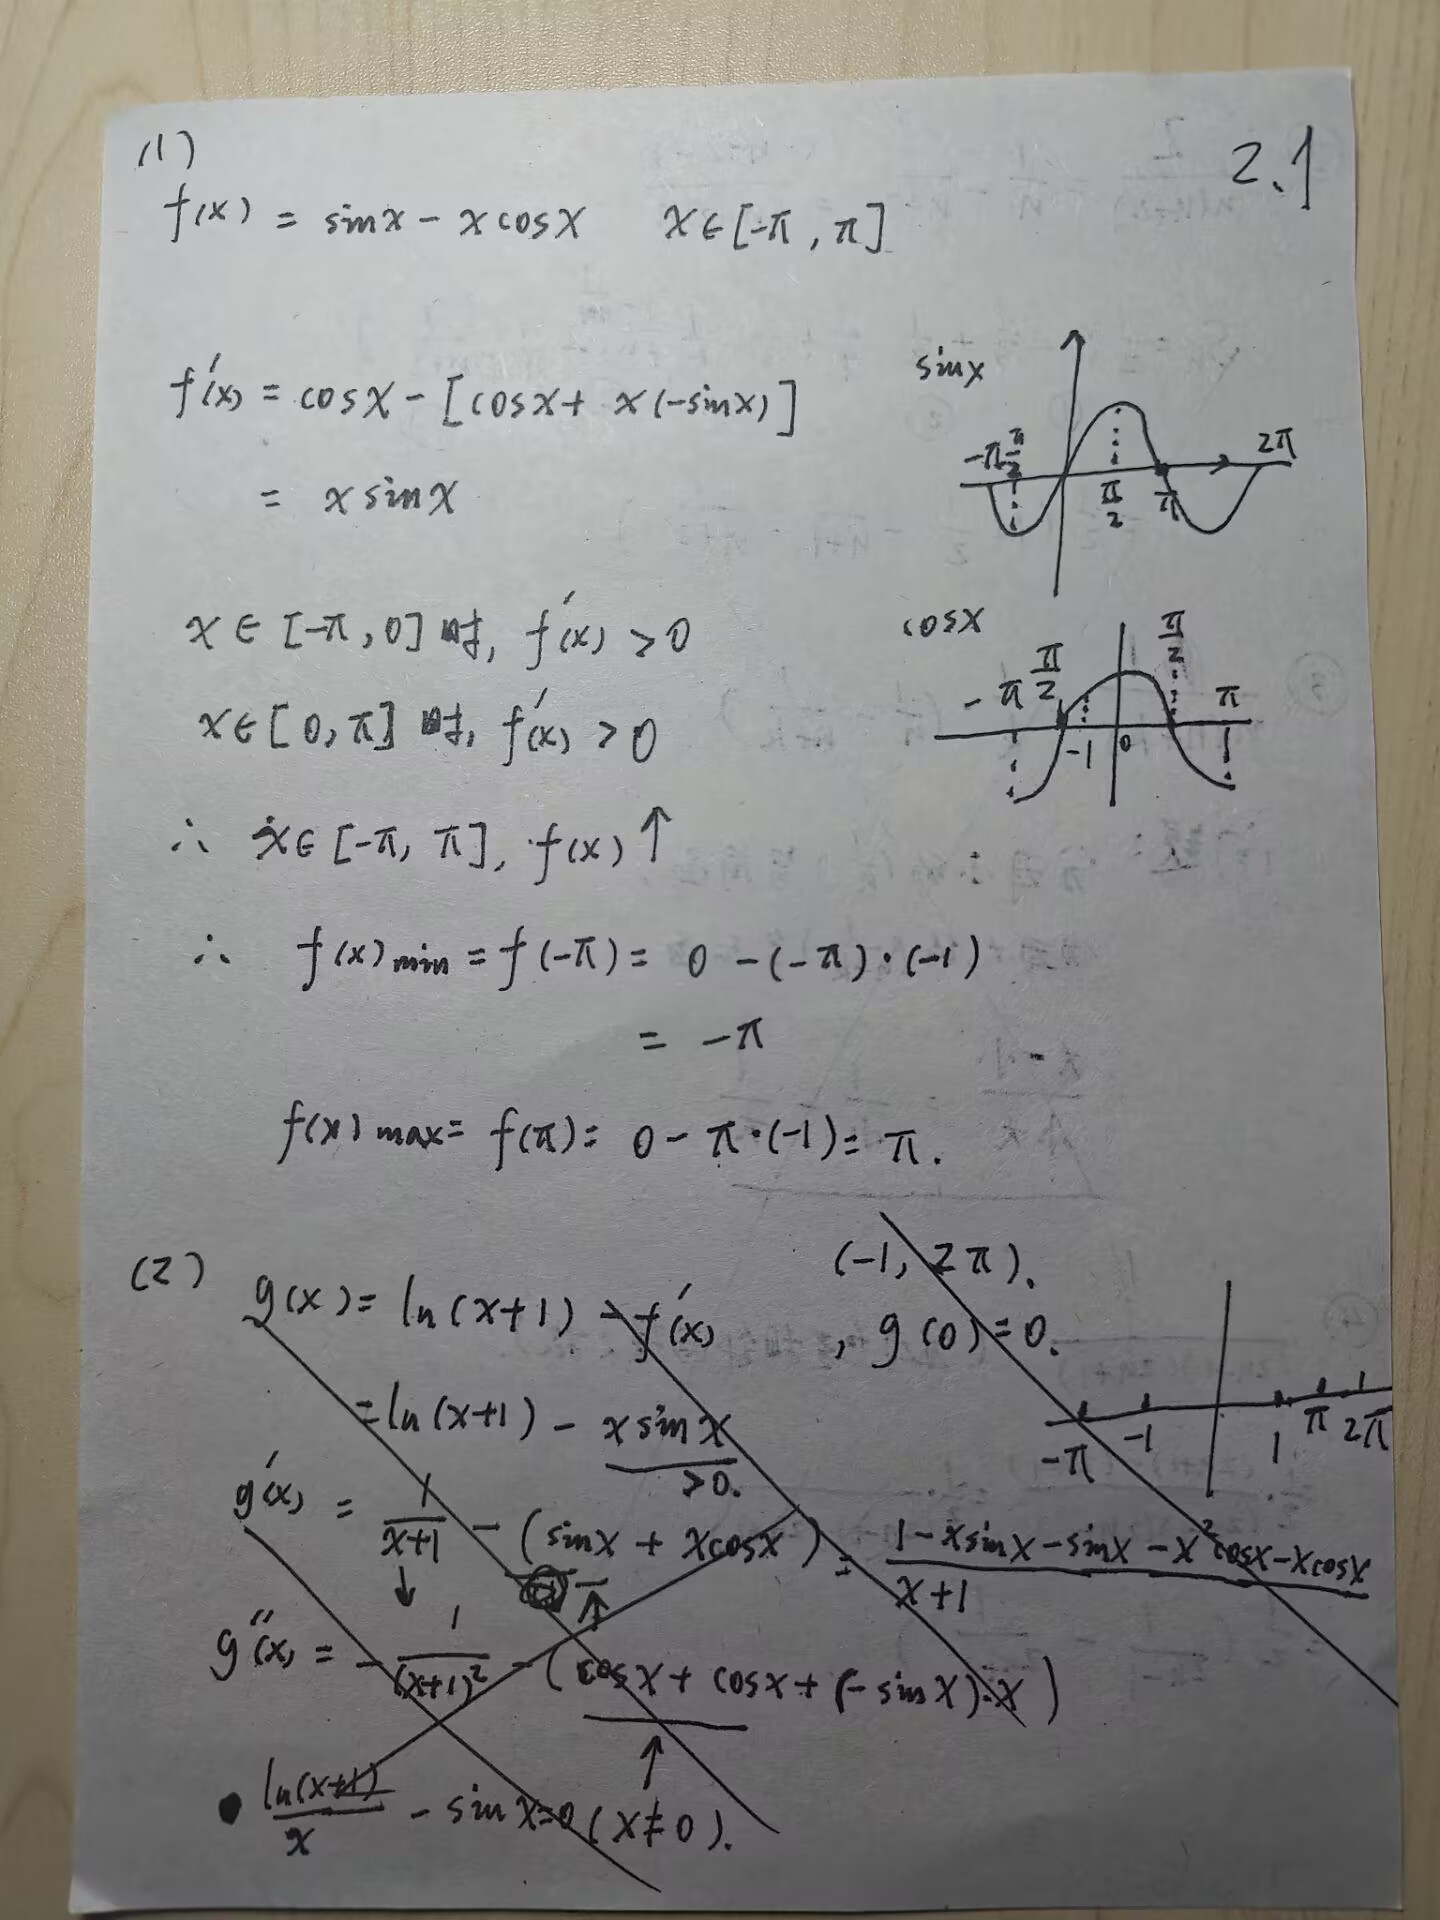 (1)
2.1
f(x) = sinx - x cosx   x∈[-π, π]
f'(x) = cosx - [cosx + x(-sinx)]
= x sinx
sinx
-π π/2 π/2 π 2π
x∈[-π, 0] 时, f'(x) > 0
x∈[0, π] 时, f'(x) > 0
cosx
-π π/2 -1 0 π/2 π
∴ x∈[-π, π], f(x)↑
∴ f(x)min = f(-π) = 0 - (-π)·(-1)
= -π
f(x)max = f(π) = 0 - π·(-1) = π.
(2)
(-1, 2π).
g(x) = ln(x+1) - f'(x), g(0)=0.
= ln(x+1) - x sinx
>0.
-π -1 1 π 2π
g'(x) = 1/(x+1) - (sinx + xcosx) = (1-xsinx-sinx-x²cosx-xcosx)/(x+1)
↓ ↑
g''(x) = -1/(x+1)² - (cosx + cosx + (-sinx)·x)
↑
ln(x+1)/x - sinx=0 (x≠0).